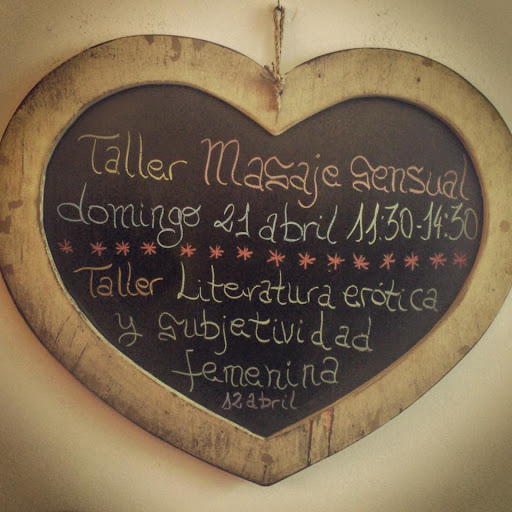 Taller Masaje sensual
domingo 21 abril 11:30-14:30
* * * * * * * * * * * * * * *
Taller Literatura erótica
y subjetividad
femenina
12 abril